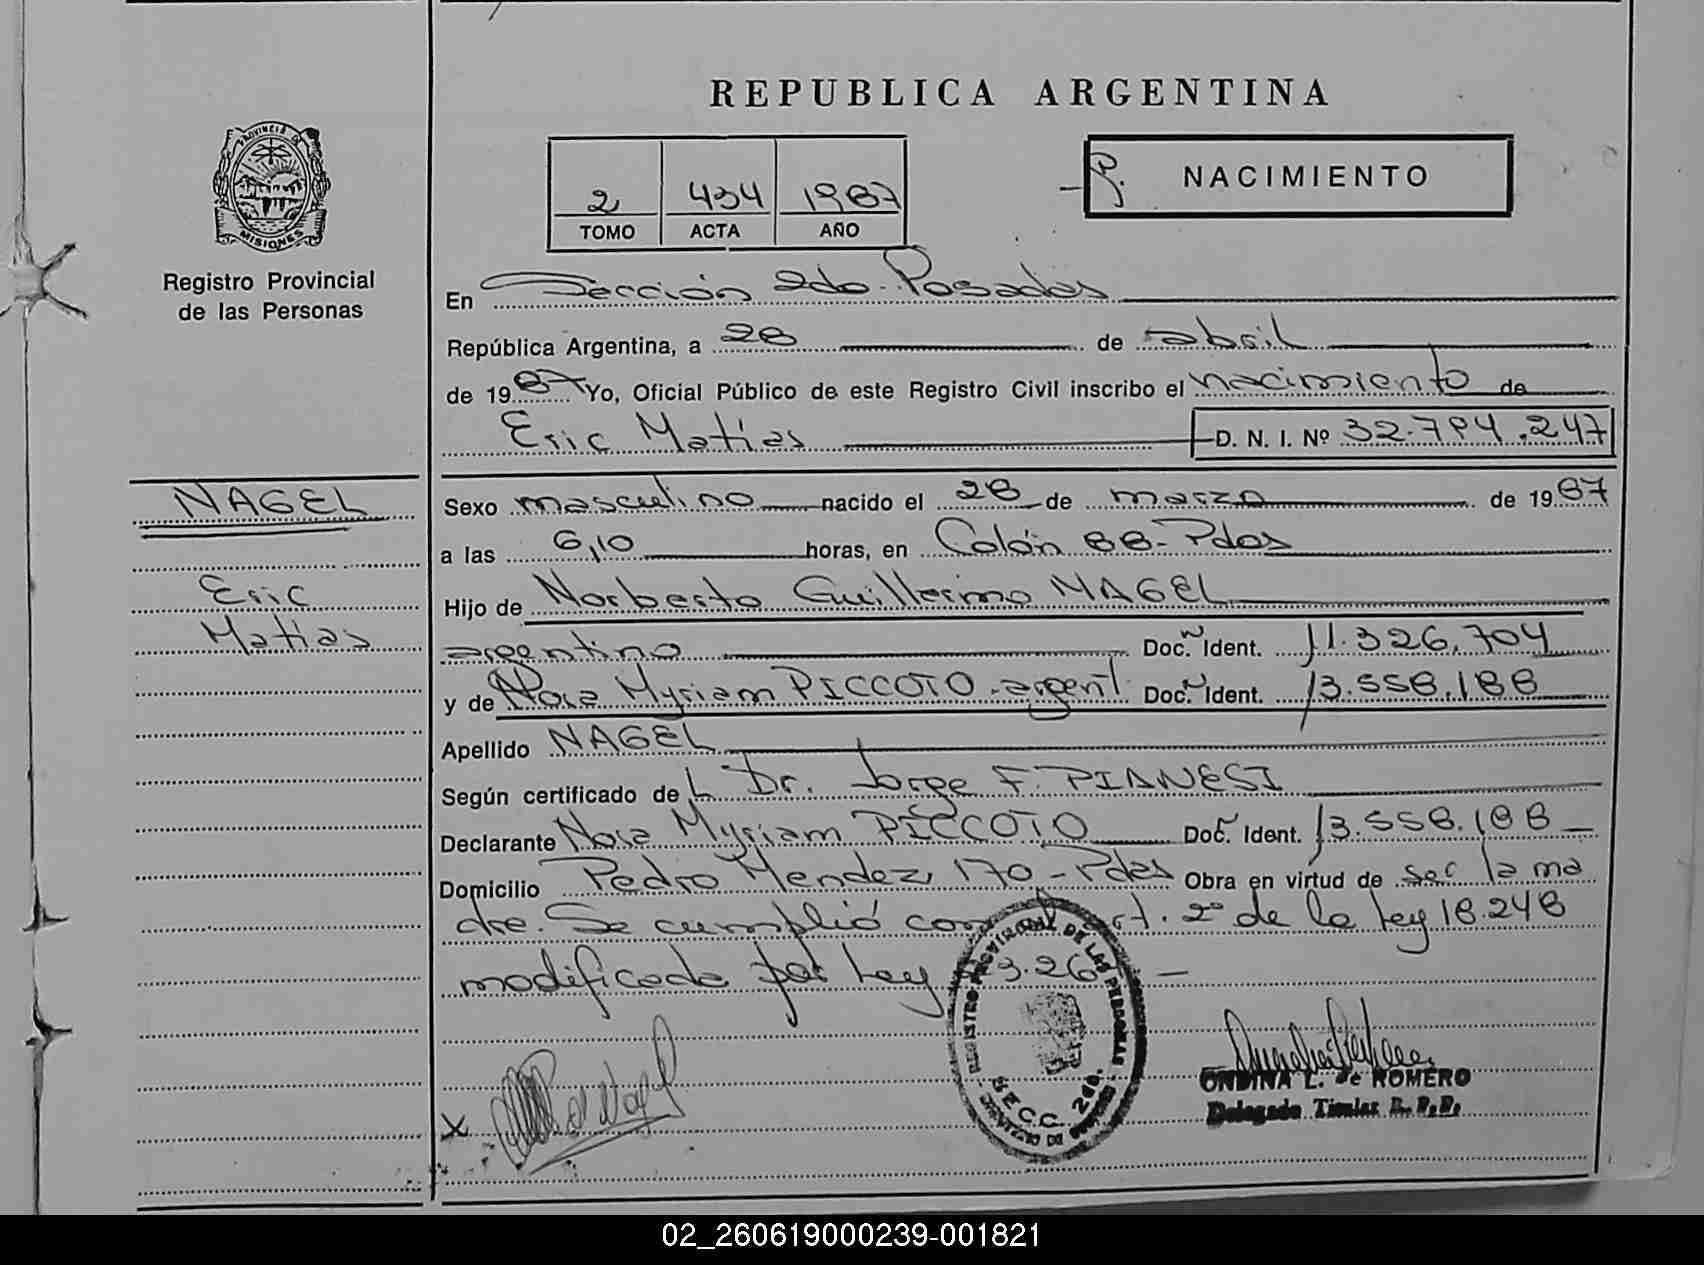 REPUBLICA ARGENTINA
PROVINCIA DE
MISIONES
Registro Provincial
de las Personas
2 434 1987
TOMO ACTA AÑO
NACIMIENTO
En Sección 2do. Posadas
República Argentina, a 28 de abril
de 1987 Yo, Oficial Público de este Registro Civil inscribo el nacimiento de
Eric Matías D. N. I. Nº 32.794.247
NAGEL
Eric
Matías
Sexo masculino nacido el 28 de marzo de 1987
a las 6,10 horas, en Colón 88-Pdas
Hijo de Norberto Guillermo NAGEL
argentino Doc. Ident. 11.326.704
y de Nora Myriam PICCOTO-argent. Doc. Ident. 13.558.188
Apellido NAGEL
Según certificado del Dr. Jorge F. PIANESI
Declarante Nora Myriam PICCOTO Doc. Ident. 13.558.188
Domicilio Pedro Mendez 170-Pdas Obra en virtud de ser la ma
dre. Se cumplió con art. 2º de la Ley 18.248
modificada por Ley 3.26
REGISTRO PROVINCIAL DE LAS PERSONAS
SECC. 2da.
ONDINA L. de ROMERO
Delegada Titular R.P.P.
X
02_260619000239-001821